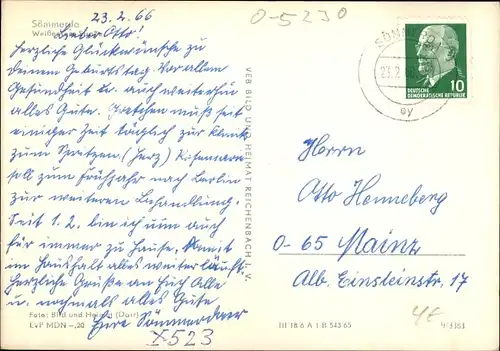 23.2.66
0-5230
Sömmerda
Lieber Otto!
Herzliche Glückwünsche zu
Deinem Geburtstag. Vor allem
Gesundheit u. auch weiterhin
alles Gute. Gretchen muß seit
einiger Zeit täglich zur Klinik
zum Spritzen. (Herz) Rosemarie
soll zum Frühjahr nach Berlin
zur weiteren Behandlung.
Seit 1.2. bin ich nun auch
für immer zu Hause, damit
im Haushalt alles weiterläuft.
Herzliche Grüße an Euch Alle
u. nochmals alles Gute
Eure Sömmerdaer
Foto: Bild und Heimat (Darr)
EVP MDN -,20
X-523
VEB BILD UND HEIMAT REICHENBACH I. V.
SÖM
23.2
ey
10
DEUTSCHE
DEMOKRATISCHE REPUBLIK
Herrn
Otto Henneberg
0-65 Mainz
Alb. Einsteinstr. 17
4€
III 18 6 A 1 B 543 65
9/3363